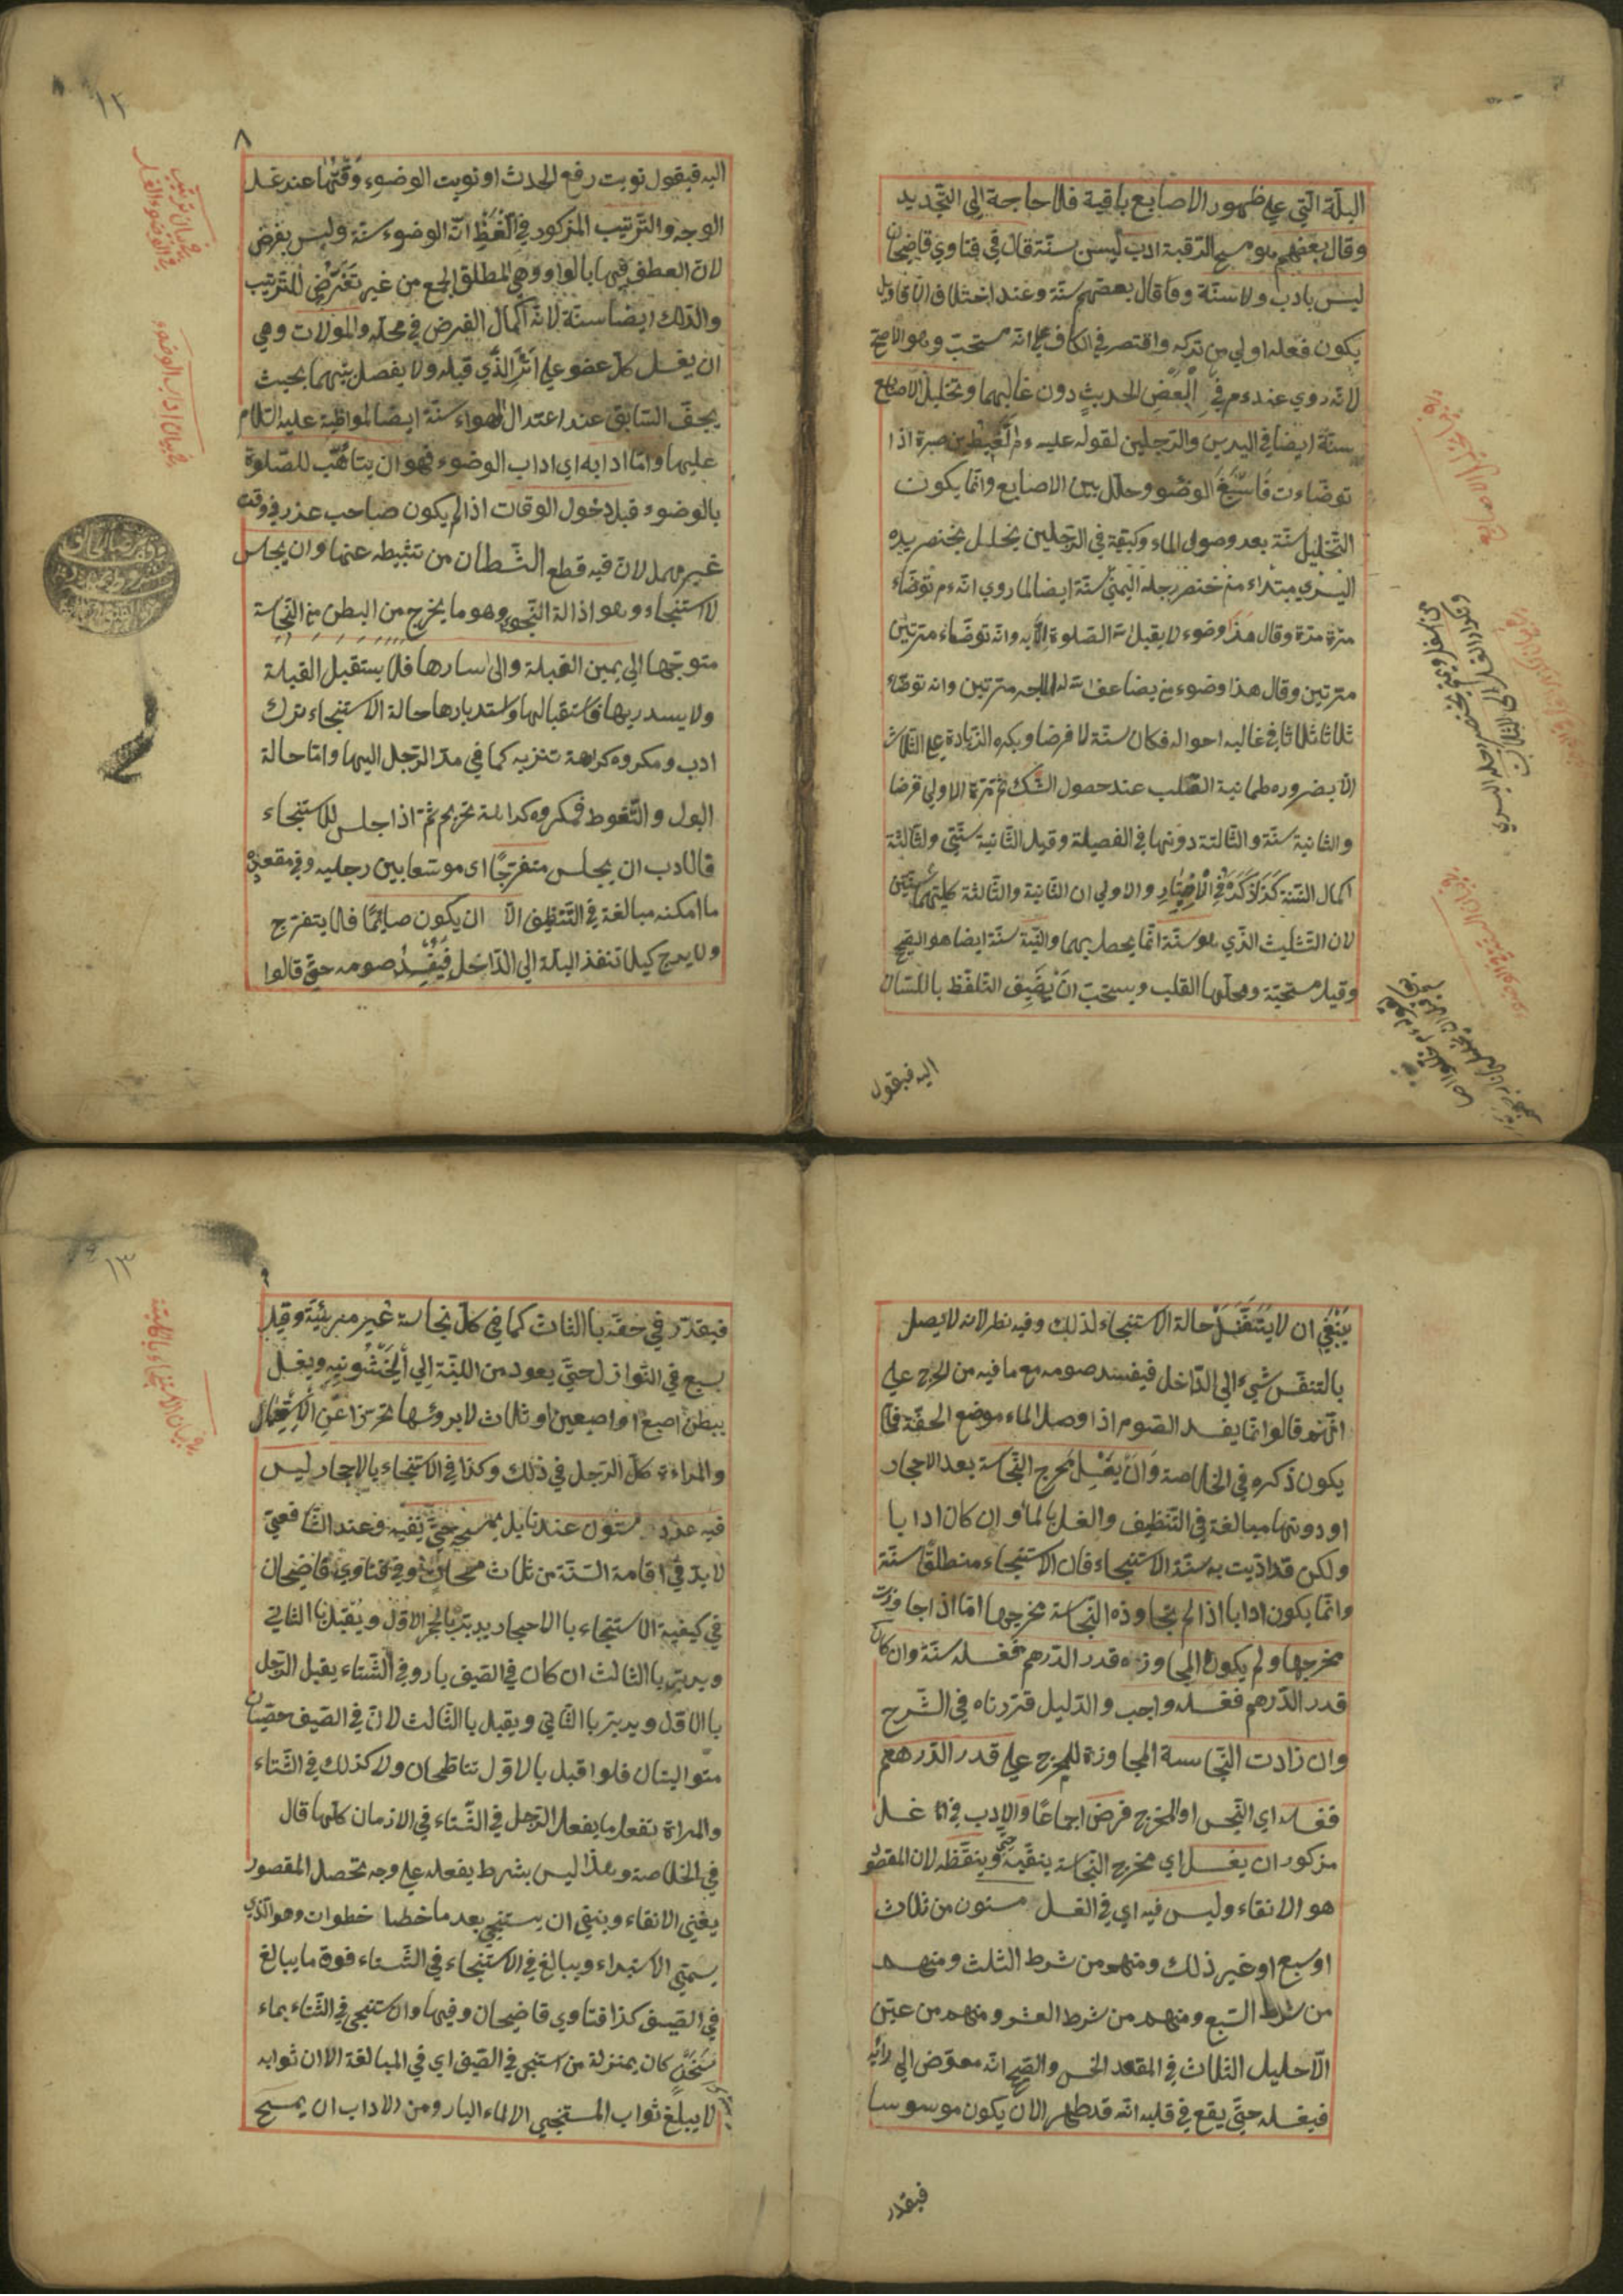 البلّة الّتي علي ظهور الاصابع باقية فلا حاجة الي التّجديد
وقال بعضهم هو مسح الرّقبة ادب ليس بسنّة قال في فتاوي قاضيخان
ليس بادب ولا سنّة وقال بعضهم سنّة وعند اختلاف الاقاويل
يكون فعله اولي من تركه واقتصر في الكافي علي انّه مستحبّ وهو الاصحّ
لانّه روي عنه عم في البعض الحديث دون غالبهما وتخليل الاصابع
سنّة ايضا في اليدين والرّجلين لقوله عليه عم للقيط بن صبرة اذا
توضّاءت فاسبغ الوضوء وخلّل بين الاصابع وانّما يكون
التّخليل سنّة بعد وصول الماء وكيفيّة في الرّجلين يخلّل بخنصر يده
اليسري مبتداء من خنصر رجله اليمني سنّة ايضا لما روي انّه عم توضّاء
مرّة مرّة وقال هذا وضوء لا يقبل الله الصّلوة الّا به وانّه توضّاء مرّتين
مرّتين وقال هذا وضوء من يضاعف الله له الاجر مرّتين وانّه توضّاء
ثلاثا ثلاثا في غالب احواله فكان سنّة لا فرضا ويكره الزّيادة علي الثّلاث
الّا بضروره طمانية القلب عند حصول الشّك ثمّ مرّة الاولي فرضا
والثانية سنّة والثّالثة دونها في الفضيلة وقيل الثّانية سنّتي والثّالثة
اكمال السّنة كذا ذكره في الاختيار والاولي ان الثّانية والثّالثة كليتهما سنّتين
لان التّثليث الّذي هو سنّة انّما يحصل بهما والنّيّة سنّة ايضا هو الصّحيح
وقيل مستحبّة ومحلّها القلب ويستحبّ ان يضيق التّلفّظ باللّسان
اليه فيقول
١٢
٨
اليه فيقول نويت رفع الحدث او نويت الوضوء وقتها عند غسل
الوجه والتّرتيب المذكور في لفظ انّه الوضوء سنّة وليس بفرض
لانّ العطف فيها بالواو وهي المطلق الجمع من غير تعرّض للتّرتيب
والدّلك ايضا سنّة لانّه اكمال الفرض في محلّه والموالات وهي
ان يغسل كلّ عضو علي اثر الّذي قبله ولا يفصل بينهما بحيث
يجفّ السّابق عند اعتدال الهواء سنّة ايضا لمواظبة عليه السّلام
عليها وامّا ادابه اي اداب الوضوء فهو ان يتاهّب للصّلوة
بالوضوء قبل دخول الوقات اذا لم يكون صاحب عذر في وقت
غير مهمل لانّ فيه قطع الشّطان من تثبيطه عنها وان يجلس
لاستنجاء وهو اذالة النّجو وهو ما يخرج من البطن من النّجاسة
متوجّها الي يمين القبلة والي يسارها فلا يستقبل القبلة
ولا يسدبرها فاستقبالها واستدبارها حالة الاستنجاء ترك
ادب ومكروه كراهة تنزيه كما في مدّ الرّجل اليها وامّا حالة
البول والتّغوط فمكروه كراهة تحريم ثمّ اذا جلس للاستنجاء
فالادب ان يجلس منفرجًا اي موسّعا بين رجليه وفي مقعده
ما امكنه مبالغة في التّنظيف الّا ان يكون صايمًا فلا يتفرج
ولا يرج كيلا تنفذ البلّة الي الدّاخل فيفسد صومه حتّي قالوا
في بيان اداب الوضوء
ينبغي ان لا يتنفّس حالة الاستنجاء لذلك وفيه نظر لانه لا يصل
بالتنفّس شيء الي الدّاخل فيفسد صومه مع ما فيه من الحرج علي
انّهم قالوا انّما يفسد الصّوم اذا وصل الماء موضع الحقنة فلا
يكون ذكره في الخلاصة وان يغسل مخرج النّجاسة بعد الاحجار
او دونها مبالغة في التّنظيف والغسل بالماء وان كان ادابا
ولكن قد ادّيت به سنّة الاستنجاء فان الاستنجاء منطلقًا سنّة
وانّما يكون ادابا اذا لم يتجاوزه النّجاسة مخرجها امّا اذا جاوزت
مخرجها ولم يكون المجاوزه قدر الدّرهم فغسله سنّة وان كان
قدر الدّرهم فغسله واجب والدّليل قرّرناه في الشّرح
وان زادت النّجاسة المجاوزة للمخرج علي قدر الدّرهم
فغسله اي النّجس او المخرج فرض اجماعًا والادب في ا غسل
مذكور ان يغسل اي مخرج النّجاسة ينقّيه وينقّظه لان المقصود
هو الانقاء وليس فيه اي في الغسل مسنون من ثلاث
او سبع او غير ذلك ومنهم من شرط الثلث ومنهم
من شرط السّبع ومنهم من شرط العشر ومنهم من عيّن
الّاحليل الثلاث في المقعد الخمس والصّحيح انّه معوّض الي رائيه
فيغسله حتّي يقع في قلبه انّه قد طهر الّا ان يكون موسوسا
فيقدر
١٣
فيقدّر في حقّه باالثّاث كما في كلّ نجاسة غير مربئيّة وقيل
بسبع في التّوازل حتّي يعود من اللّينة الي الخشونيه ويغسل
ببطن اصبع او اصبعين او ثلاث لا بروئسها تحرّزا عن الاستمتاع
والمراءة كلّ الرّجل في ذلك وكذا في الاستنجاء بالاحجار ليس
فيه عدد مسنون عندنا بل يمسح حتّي نقيه وعند الشّافعيّ
لا بدّ في اقامة السّنّة من ثلاث مسحات وفي فتاوي قاضيخان
في كيفية الاستنجاء باالاحجار يدبر بالحجر الاوّل ويقبل باالثاني
ويدبر باالثالث ان كان في الصّيف بارو في الشّتاء يقبل الرّجل
باالاوّل ويدبر باالثّاني ويقبل باالثّالث لانّ في الصّيف خصيتان
متواليتان فلو اقبل بالاوّل تتاطّحان ولا كذلك في الشّتاء
والمراة تفعل ما يفعل الرّجل في الشّتاء في الازمان كلّها قال
في الخلاصة وهذا ليس بشرط يفعله علي وجه تحصل المقصود
يعني الانقاء وينبغي ان يستنجي بعد ما خطا خطوات وهو الّذي
يسمّي الاستبراء ويبالغ في الاستنجاء في الشّتاء فوق ما يبالغ
في الصّيف كذا فتاوي قاضيخان وفيها وان استنجي في الشّتاء بماء
سخن كان بمنزلة من استنجي في الصّيف اي في المبالغة الّا ان ثوابه
لا يبلغ ثواب المستنجي الا لماء البارد ومن الاداب ان يمسح